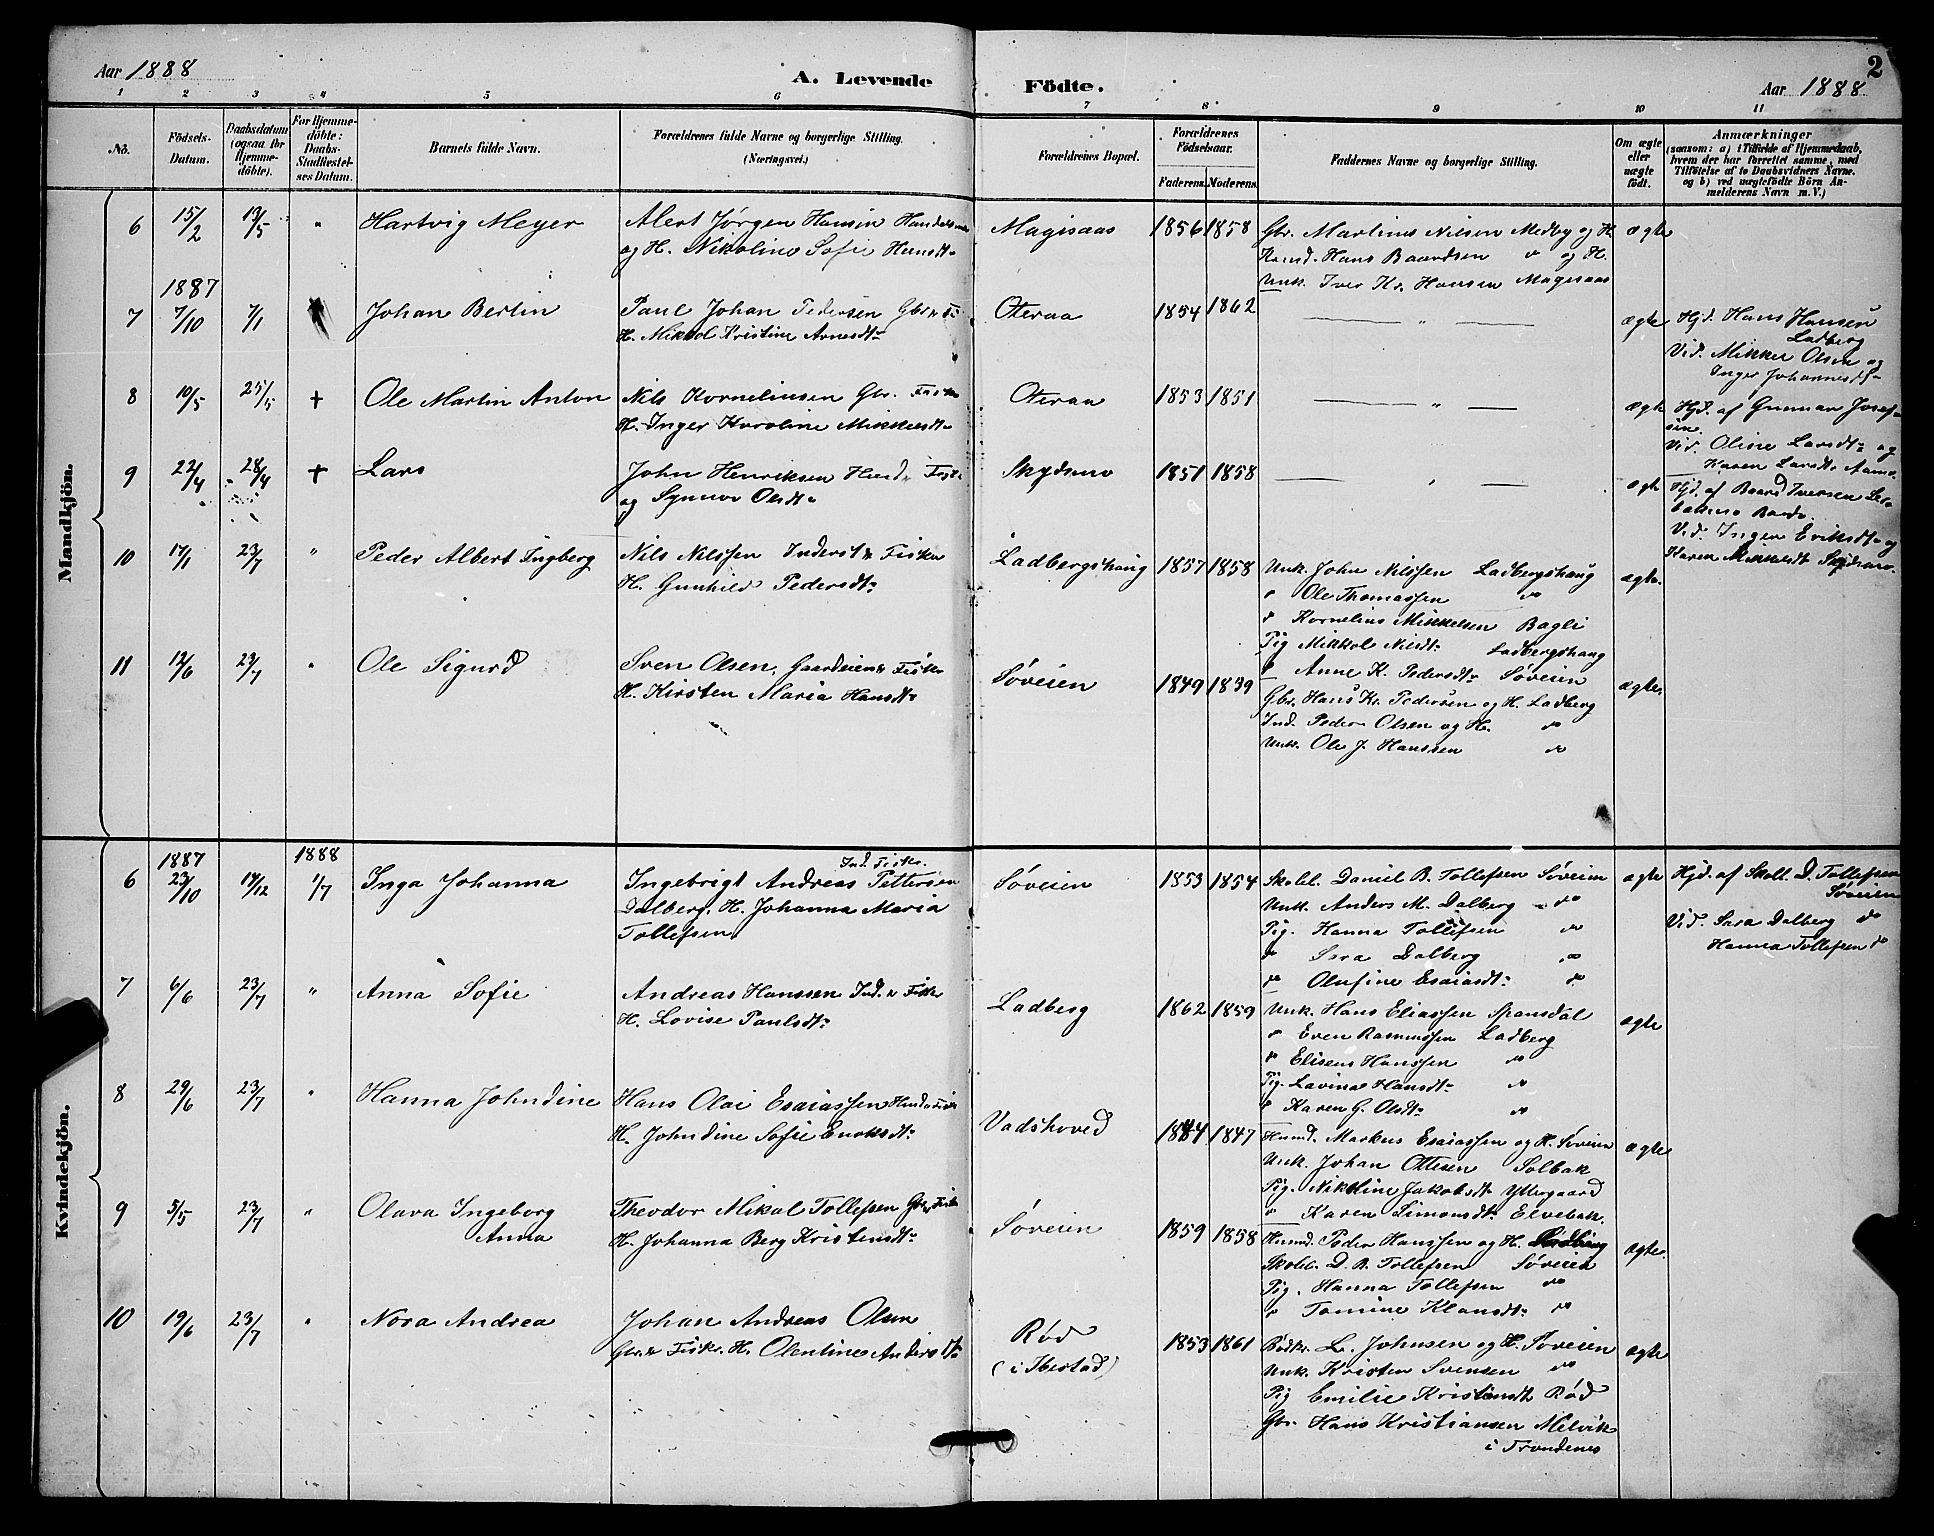 Aar 1888
A. Levende Födte.
Aar 1888
2
1 2 3 4 5 6 7 8 9 10 11
No.
Födsels-Datum.
Daabsdatum (ogsaa for Hjemme-döbte).
For Hjemme-döbte: Daabs-Stadfæstel-ses Datum.
Barnets fulde Navn.
Forældrenes fulde Navne og borgerlige Stilling. (Næringsvei.)
Forældrenes Bopæl.
Forældrenes Födselsaar.
Faderens. Moderens.
Faddernes Navne og borgerlige Stilling.
Om ægte eller uægte födt.
Anmærkninger
(saasom: a) i Tilfælde af Hjemmedaab,
hvem der har forrettet samme, med
Tilföielse af to Daabsvidners Navne.
og b) ved uægtefödte Börn An-
melderens Navn m. V.)
Mandkjön.
6 15/2 13/5 " Hartvig Meyer
Alert Jørgen Hansen
og H. Nikoline Sofie Hansdt.
Magisaas 1856 1858
Gbr. Martinus Nilsen Medby og H.
Hans Baardsen " og H.
Unk. Iver Kr. Hansen Magisaas
ægte
1887
7 7/10 7/1 Johan Berlin
Paul Johan Pedersen Gbr. & Fi
H. Mikkol Kristine Arnesdt.
Oteraa 1854 1862
— " —
ægte
Hjd. Hans Hansen
Ladberg
Vid. Mikkel Olsen og
Inger Johannesdt.
8 10/5 25/5 + Ole Martin Anton
Nils Kornelinsen Gbr. Fisker
H. Inger Karoline Mikkelsdt.
Oteraa 1853 1851
— " —
ægte
Hjd. af Gunnar Josef-
sen.
Vid. Oline Larsdt. og
Karen Larsdt.
9 22/4 28/4 + Lars
John Henriksen Husmd. Fisk.
og Synnov Olsdt.
Skydsmo 1851 1858
— " —
ægte
Hjd. af Baard Iversen
Vid. Inger Eriksdt. og
Karen Mikkelsdt Skydsmo.
10 17/1 23/7 " Peder Albert Ingberg
Nils Nilssen Inderst & Fisker
H. Gunhild Pedersdt.
Ladbergshaug 1857 1858
Unk. John Nilssen Ladbergshaug
" Ole Thomassen "
" Kornelius Mikkelsen Bagli
Pig Mikkol Nilsdt. Ladbergshaug
" Anne K. Pedersdt. Søveien
ægte.
11 12/6 23/7 " Ole Sigurd
Sven Olsen, Gaardeier & Fisker
H. Kirsten Maria Hansdt.
Søveien 1849 1839
Gbr. Hans Kr. Pedersen og H. Ladberg
Ind. Peder Olsen og H. "
Unk. Ole J. Hanssen "
ægte.
Kvindekjön.
1887 1888
6 23/10 17/12 1/7 Inga Johanna
Ind. Fisker.
Ingebrigt Andreas Pettersen
Dalberg. H. Johanna Maria
Tollefsen
Søveien 1853 1854
Skolel. Daniel B. Tollefsen Søveien
Unk. Anders M. Dalberg "
Pig. Hanna Tollefsen "
" Sara Dalberg "
" Olufine Esaiasdt. "
ægte
Hjd. af Skoll. D. Tollefsen
Søveien
Vid. Sara Dalberg do
Hanna Tollefsen do
7 6/6 23/7 " Anna Sofie
Andreas Hanssen Ind. & Fisker
H. Lovise Paulsdt.
Ladberg 1862 1859
Unk. Hans Eliassen Spansdal
" Even Rasmussen Ladberg
" Elisens Hanssen "
Pig. Lavinae Hansdt. "
" Karen G. Olsdt. "
ægte
8 29/6 23/7 " Hanna Johndine
Hans Olai Esaiassen
H. Johndine Sofie Enoksdt.
Vadshoved 1844 1847
Husmd. Markus Esaiassen og H. Søveien
Unk. Johan Ottesen Solbak
Pig. Nikoline Jakobsdt Yttergaard
" Karen Simonsdt. Elvebak.
ægte.
9 5/5 23/7 " Olava Ingeborg
Anna
Theodor Mikal Tollefsen Gbr & Fisk
H. Johanna Berg Kristensdt.
Søveien 1859 1858
Husmd. Peder Hanssen og H. Ladberg
Skolel. D. B. Tollefsen Søveien
Pig. Hanna Tollefsen "
" Tomine Klausdt. "
ægte.
10 19/6 23/7 " Nora Andrea
Johan Andreas Olsen
Gbr. & Fisker. H. Olentine Andersdt.
Rød
(i Ibestad)
1853 1861
Bødkr. L. Johnsen og H. Søveien
Unk. Kristen Svensen "
Pig Emilie Kristiansdt Rød
Gbr. Hans Kristiansen Melvik
i Trondenes
ægte